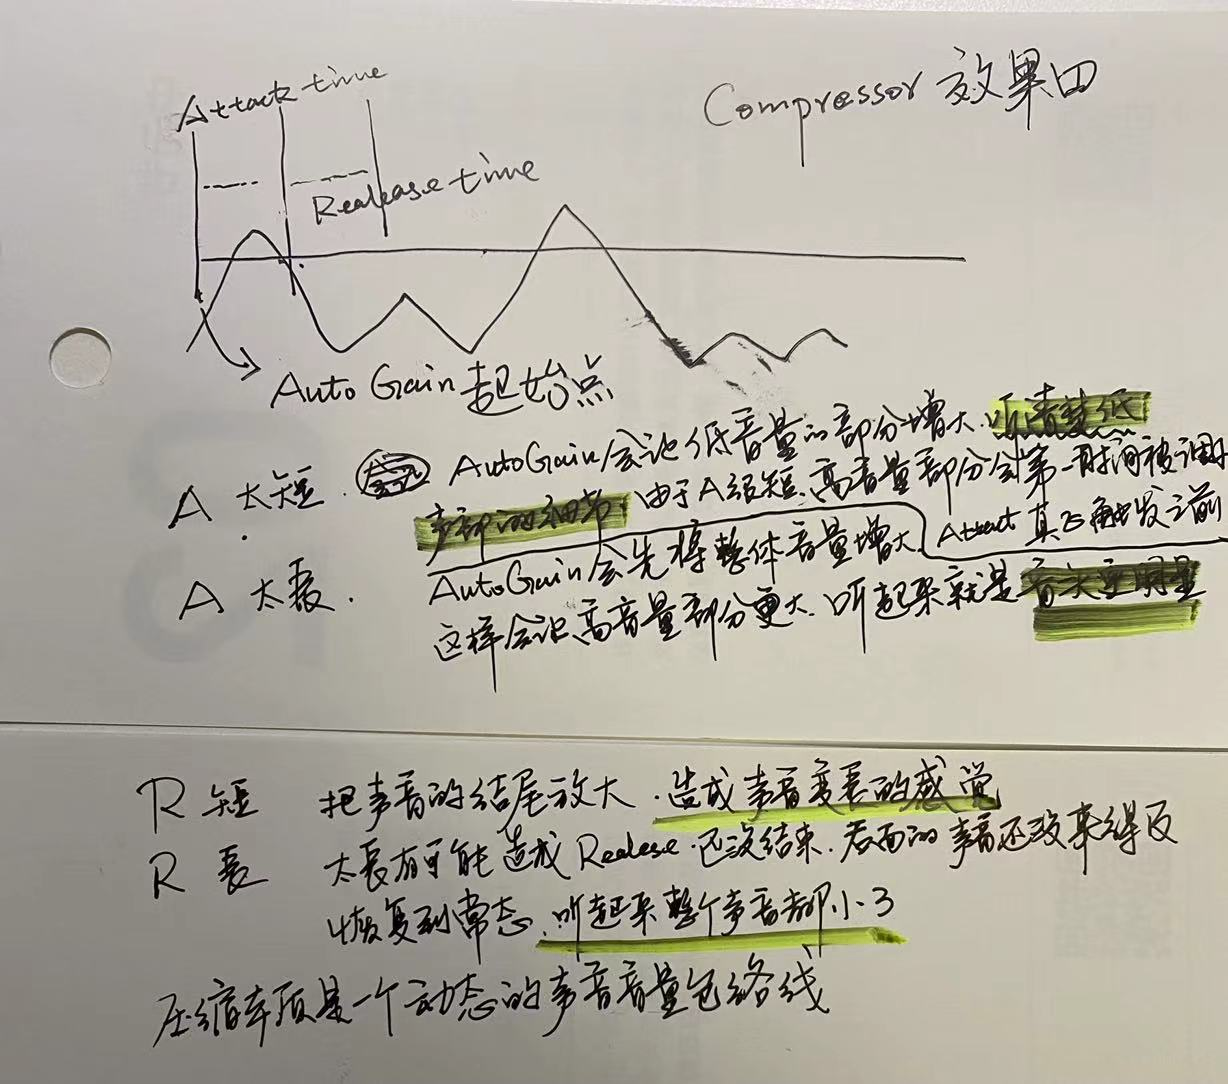 Compressor 效果四
Attack time
Realease time
Auto Gain 起始点
A 太短. AutoGain会让低音量的部分增大.听清楚低
声部的细节.由于A很短.高音量部分会第一时间被调
A 太长. AutoGain会先将整体音量增大. Attact 真正触发之前
这样会让高音量部分更大.听起来就是音头更明显
R 短 把声音的结尾放大.造成声音变长的感觉
R 长 太长有可能造成Realese.还没结束.后面的声音还没来得及
恢复到常态.听起来整个声音都小了
压缩本质是一个动态的声音音量包络线